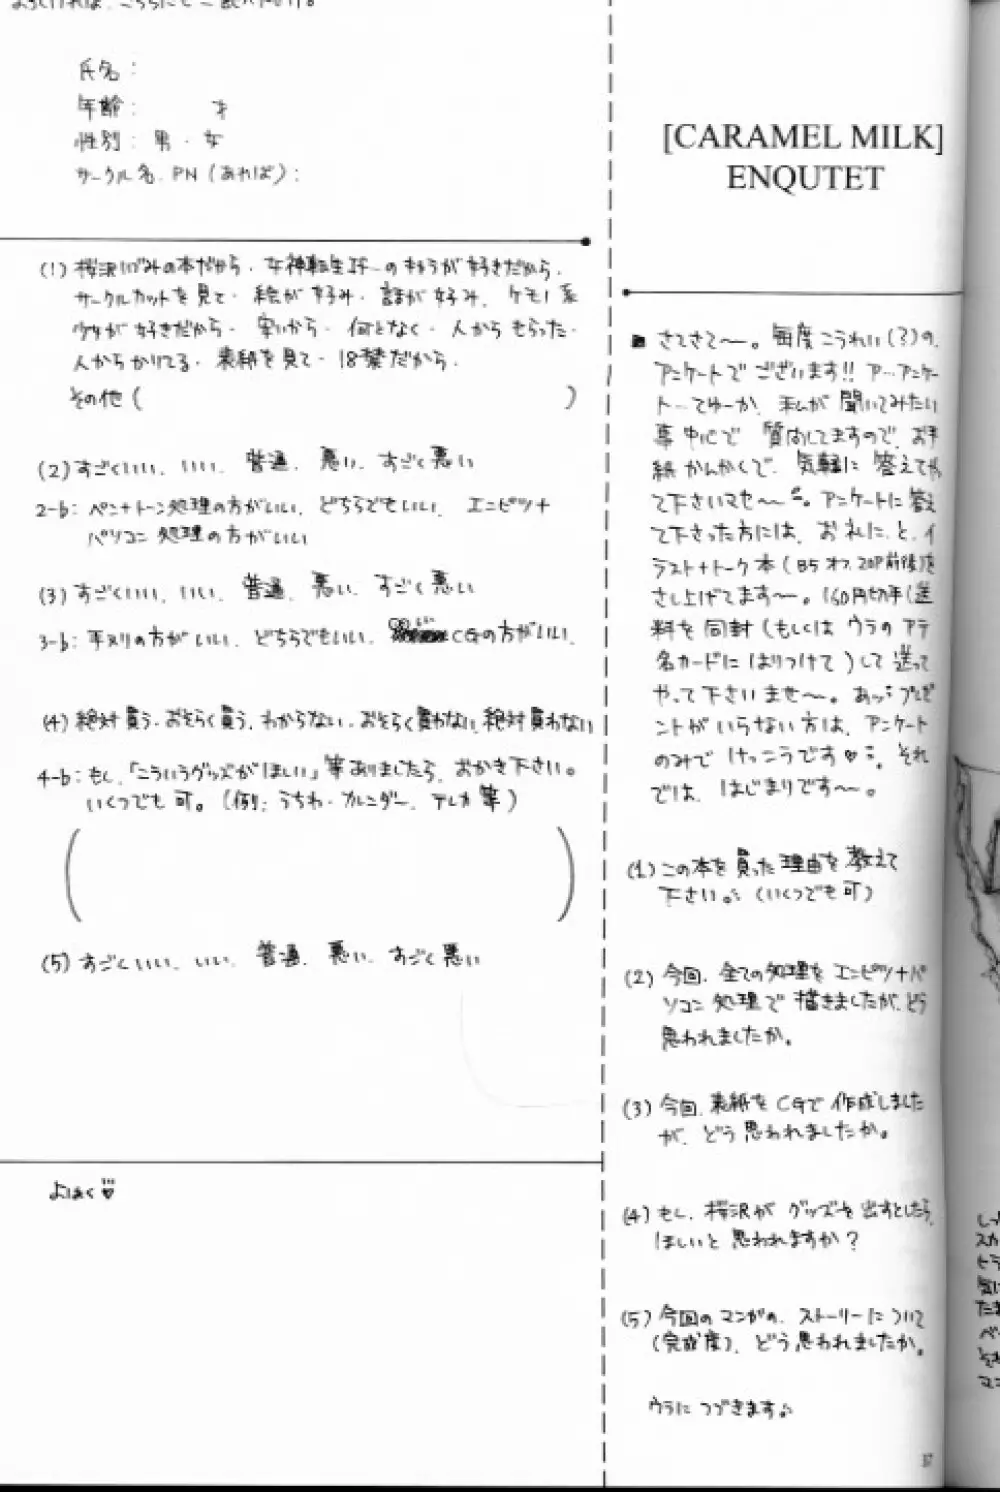 氏名:
年齢:　　　才
性別: 男・女
サークル名.PN(あれば):
(1) 桜沢いづみの本だから・女神転生if…の本だから・
サークルカットを見て・絵が好み・話が好み、ケモノ系
少年が好きだから・安いから・何となく・人からもらった・
人からかりてる・表紙を見て・18禁だから・
その他(　　　)
(2) すごくいい、いい、普通、悪い、すごく悪い
2-b: ペン+トーン処理の方がいい、どちらでもいい、エンピツ+
パソコン処理の方がいい
(3) すごくいい、いい、普通、悪い、すごく悪い
3-b: 手ヌリの方がいい、どちらでもいい、CGの方がいい、
(4) 絶対買う・おそらく買う、わからない、おそらく買わない、絶対買わない
4-b: もし、「こういうグッズがほしい」等ありましたら、おかき下さい。
いくつでも可。(例: うちわ・カレンダー、テレカ等)
(5) すごくいい、いい、普通、悪い、すごく悪い
よはく♡
[CARAMEL MILK]
ENQUTET
■ さてさて〜。毎度こうれい(?)の、
アンケートでございます!! ア…アンケー
ト…てゆーか、私が聞いてみたい
事中心で質問してますので、お手
紙かんかくで、気軽に答えてや
って下さいマセ〜。アンケートに答え
て下さった方には、お礼に、と、イ
ラスト+トーク本(B5オフ20P前後)を
さし上げてます〜。160円切手(送
料を同封(もしくはウラのアテ
名カードにはりつけて)して送って
やって下さいませ〜。あっ、プレゼ
ントがいらない方は、アンケート
のみでけっこうです♡。それ
では、はじまりです〜。
(1) この本を買った理由を教えて
下さい。(いくつでも可)
(2) 今回、全ての処理をエンピツ+パ
ソコン処理で描きましたが、どう
思われましたか。
(3) 今回、表紙をCGで作成しました
が、どう思われましたか。
(4) もし、桜沢がグッズを出すとしたら、
ほしいと思われますか?
(5) 今回のマンガの、ストーリーについて
(完成度)、どう思われましたか。
ウラにつづきます♪
37